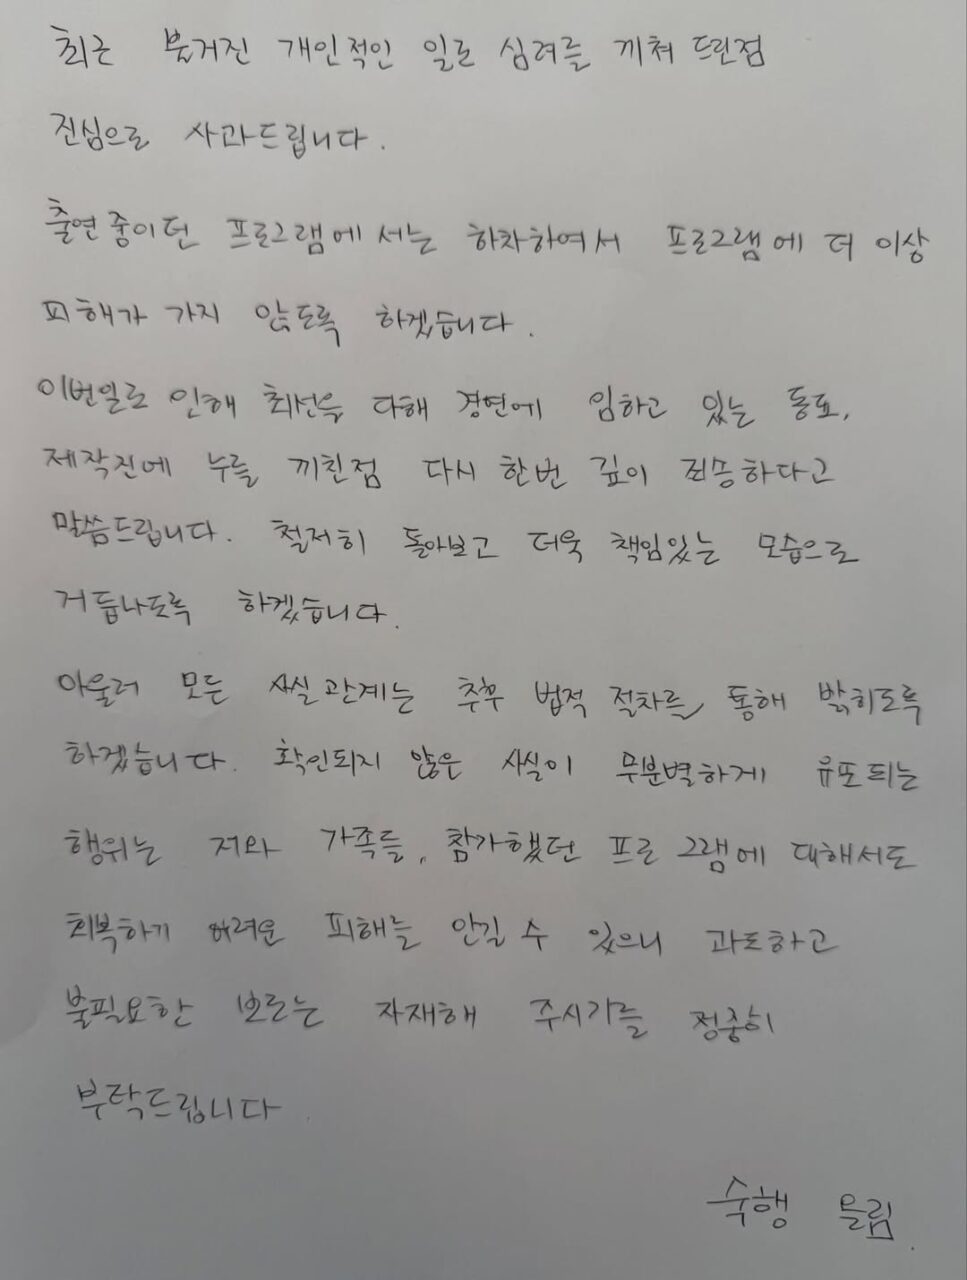 최근 불거진 개인적인 일로 심려를 끼쳐 드린점
진심으로 사과드립니다.
출연중이던 프로그램에서는 하차하여서 프로그램에 더 이상
피해가 가지 않도록 하겠습니다.
이번일로 인해 최선을 다해 경연에 임하고 있는 동료,
제작진에 누를 끼친점 다시 한번 깊이 죄송하다고
말씀드립니다. 철저히 돌아보고 더욱 책임있는 모습으로
거듭나도록 하겠습니다.
아울러 모든 사실관계는 추후 법적 절차를 통해 밝히도록
하겠습니다. 확인되지 않은 사실이 무분별하게 유포되는
행위는 저와 가족들, 참가했던 프로그램에 대해서도
회복하기 어려운 피해를 안길 수 있으니 과도하고
불필요한 보도는 자재해 주시기를 정중히
부탁드립니다.
숙행 올림.